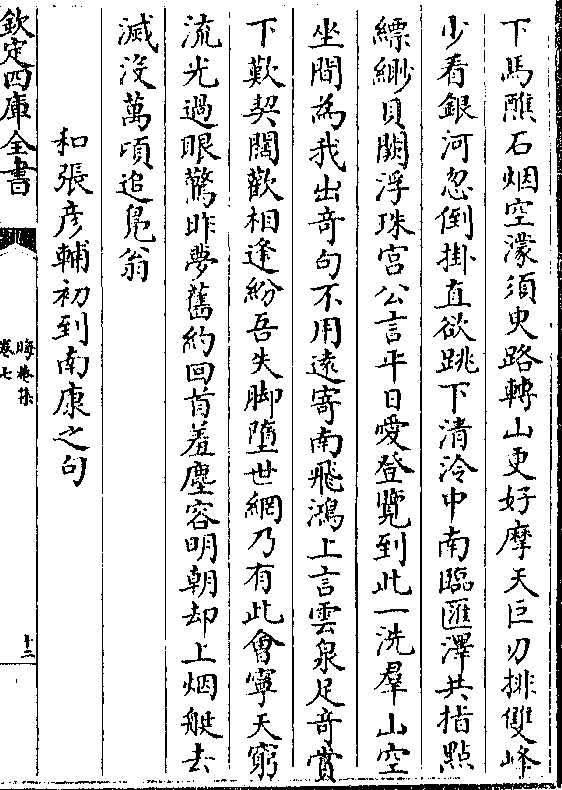 下馬醮石烟空濛須臾路轉山更好摩天巨刃排雙峰
少看銀河忽倒掛直欲跳下清泠中南臨匯澤共指點
縹緲貝闕浮珠宫公言平日愛登覽到此一洗羣山空
坐間為我出竒句不用遠寄南飛鴻上言雲泉足竒賞
下歎契闊歡相逢紛吾失脚墮世網乃有此會寧天窮
流光過眼驚昨夢舊約回首羞塵容明朝却上烟艇去
滅没萬頃追凫翁
和張彦輔初到南康之句
欽定四庫全書
晦菴集
卷七
十二